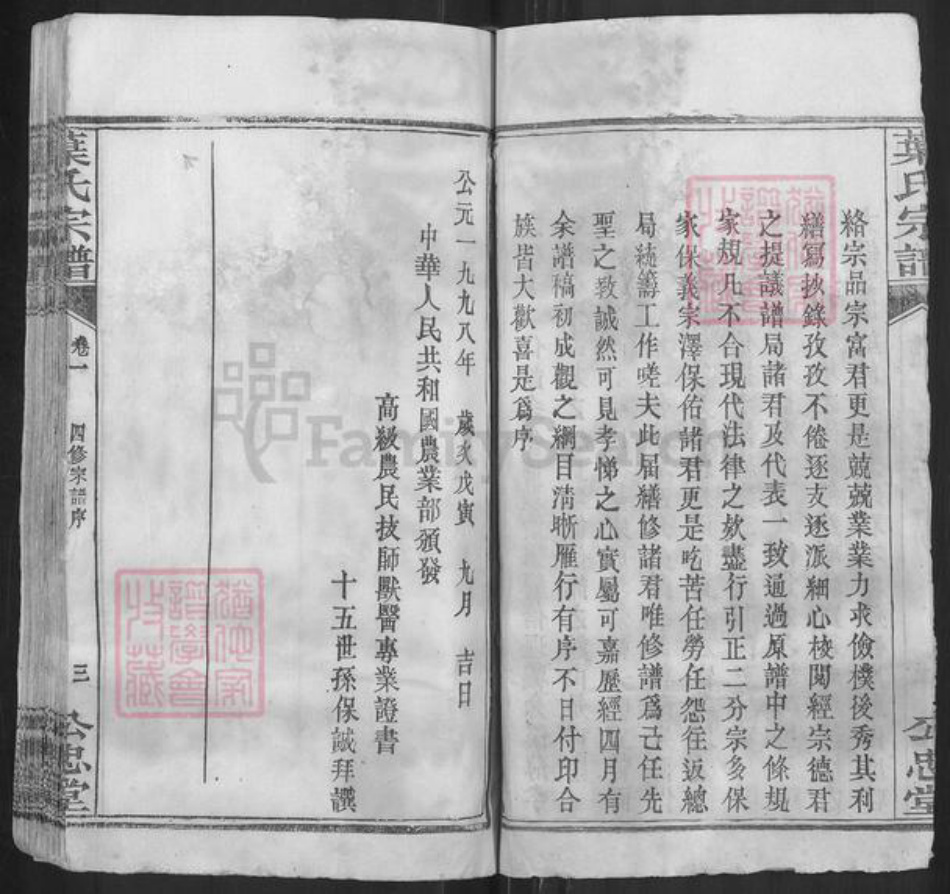 葉氏宗譜
絡宗品宗富君更是兢兢業業力求儉樸後秀其利
繕寫抄錄孜孜不倦逐支逐派細心校閱經宗德君
之提議譜局諸君及代表一致通過原譜中之條規
家規凡不合現代法律之款盡行引正二分宗多保
家保義宗澤保佑諸君更是吃苦任勞任怨往返總
局統籌工作嗟夫此届繕修諸君唯修譜為己任先
聖之教誠然可見孝悌之心實屬可嘉歷經四月有
余譜稿初成觀之綱目清晰雁行有序不日付印合
族皆大歡喜是爲序
公元一九九八年 歲次戊寅 九月 吉日
中華人民共和國農業部頒發
高級農民技師獸醫專業證書
十五世孫保誠拜譔
葉氏宗譜
卷一
四修宗譜序
三
公忠堂
公忠堂
FamilySearch